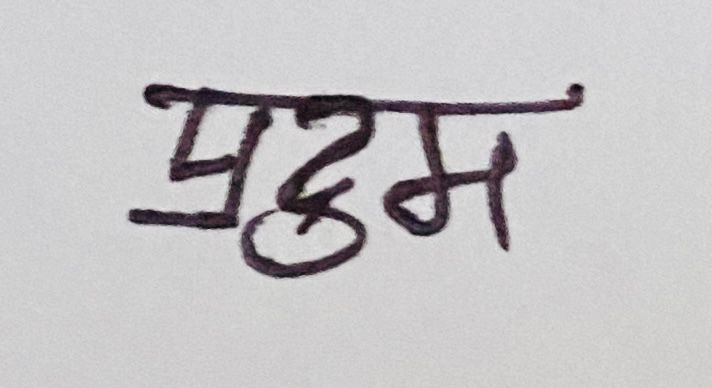 प्रदुम